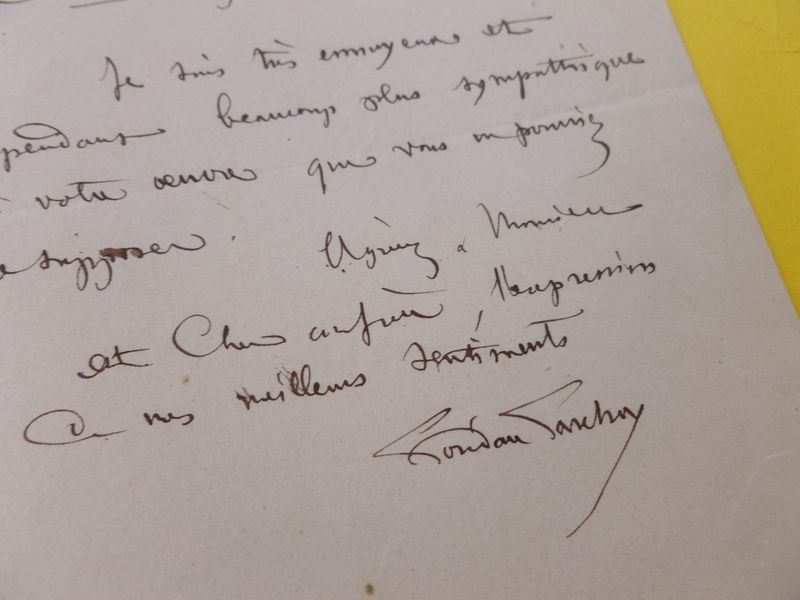 Je suis très ennuyeux et
pendant beaucoup plus sympathique
à votre œuvre que vous ne pourriez
le supposer. Agréez, Monsieur
et Cher confrère, l'expression
de mes meilleurs sentiments